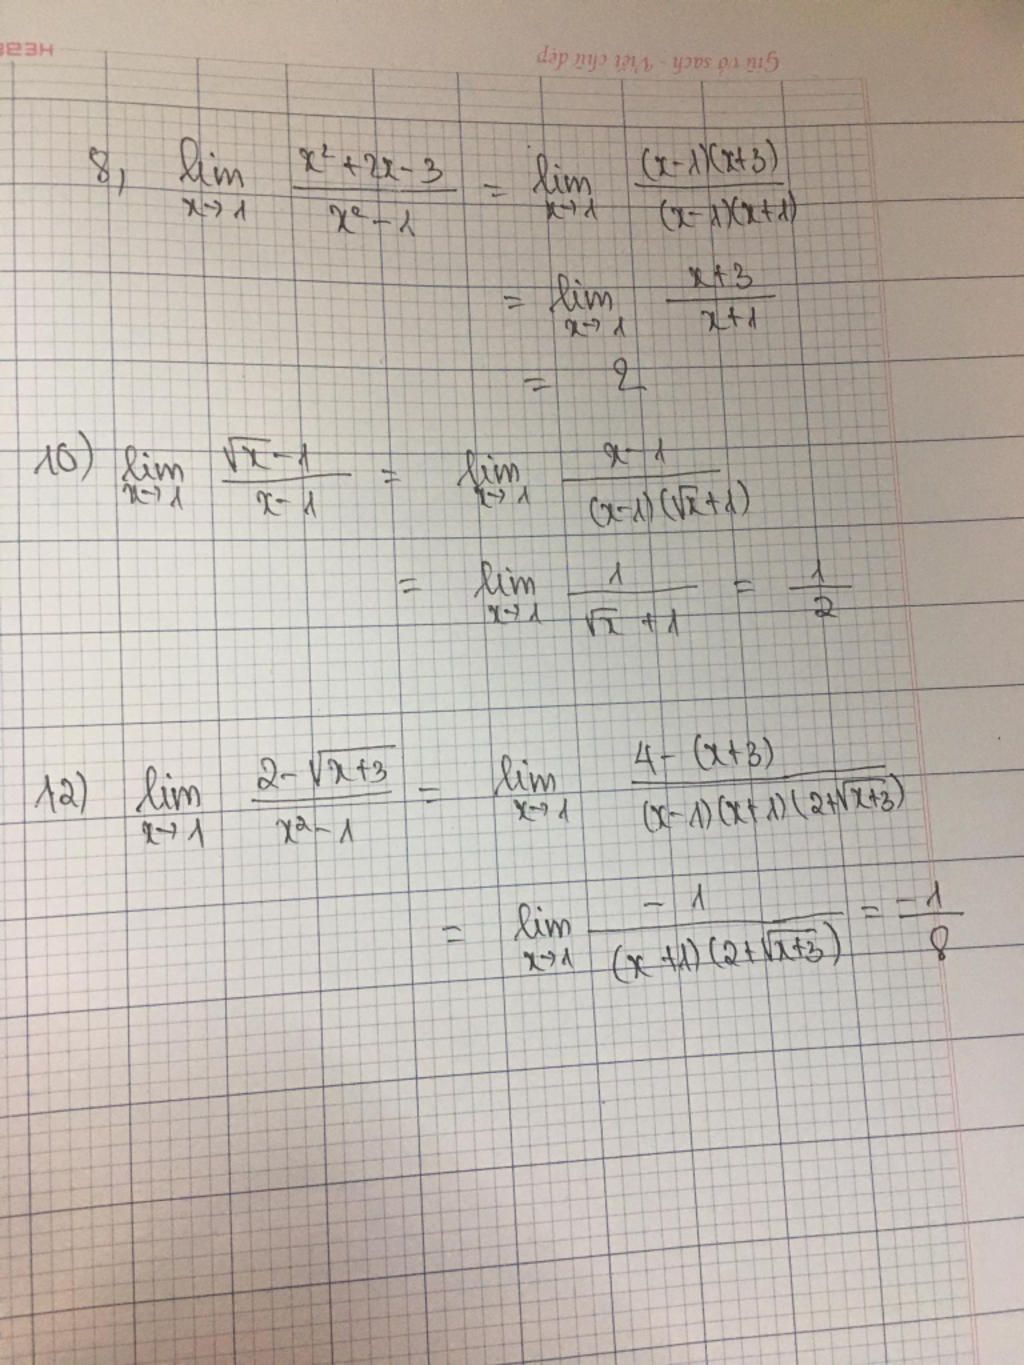 HEBB
Giữ vở sạch - Viết chữ đẹp
8, lim x→1 (x² + 2x - 3)/(x² - 1) = lim x→1 ((x-1)(x+3))/((x-1)(x+1))
= lim x→1 (x+3)/(x+1)
= 2
10) lim x→1 (√x - 1)/(x - 1) = lim x→1 (x-1)/((x-1)(√x+1))
= lim x→1 1/(√x + 1) = 1/2
12) lim x→1 (2-√(x+3))/(x²-1) = lim x→1 (4-(x+3))/((x-1)(x+1)(2+√(x+3)))
= lim x→1 -1/((x+1)(2+√(x+3))) = -1/8